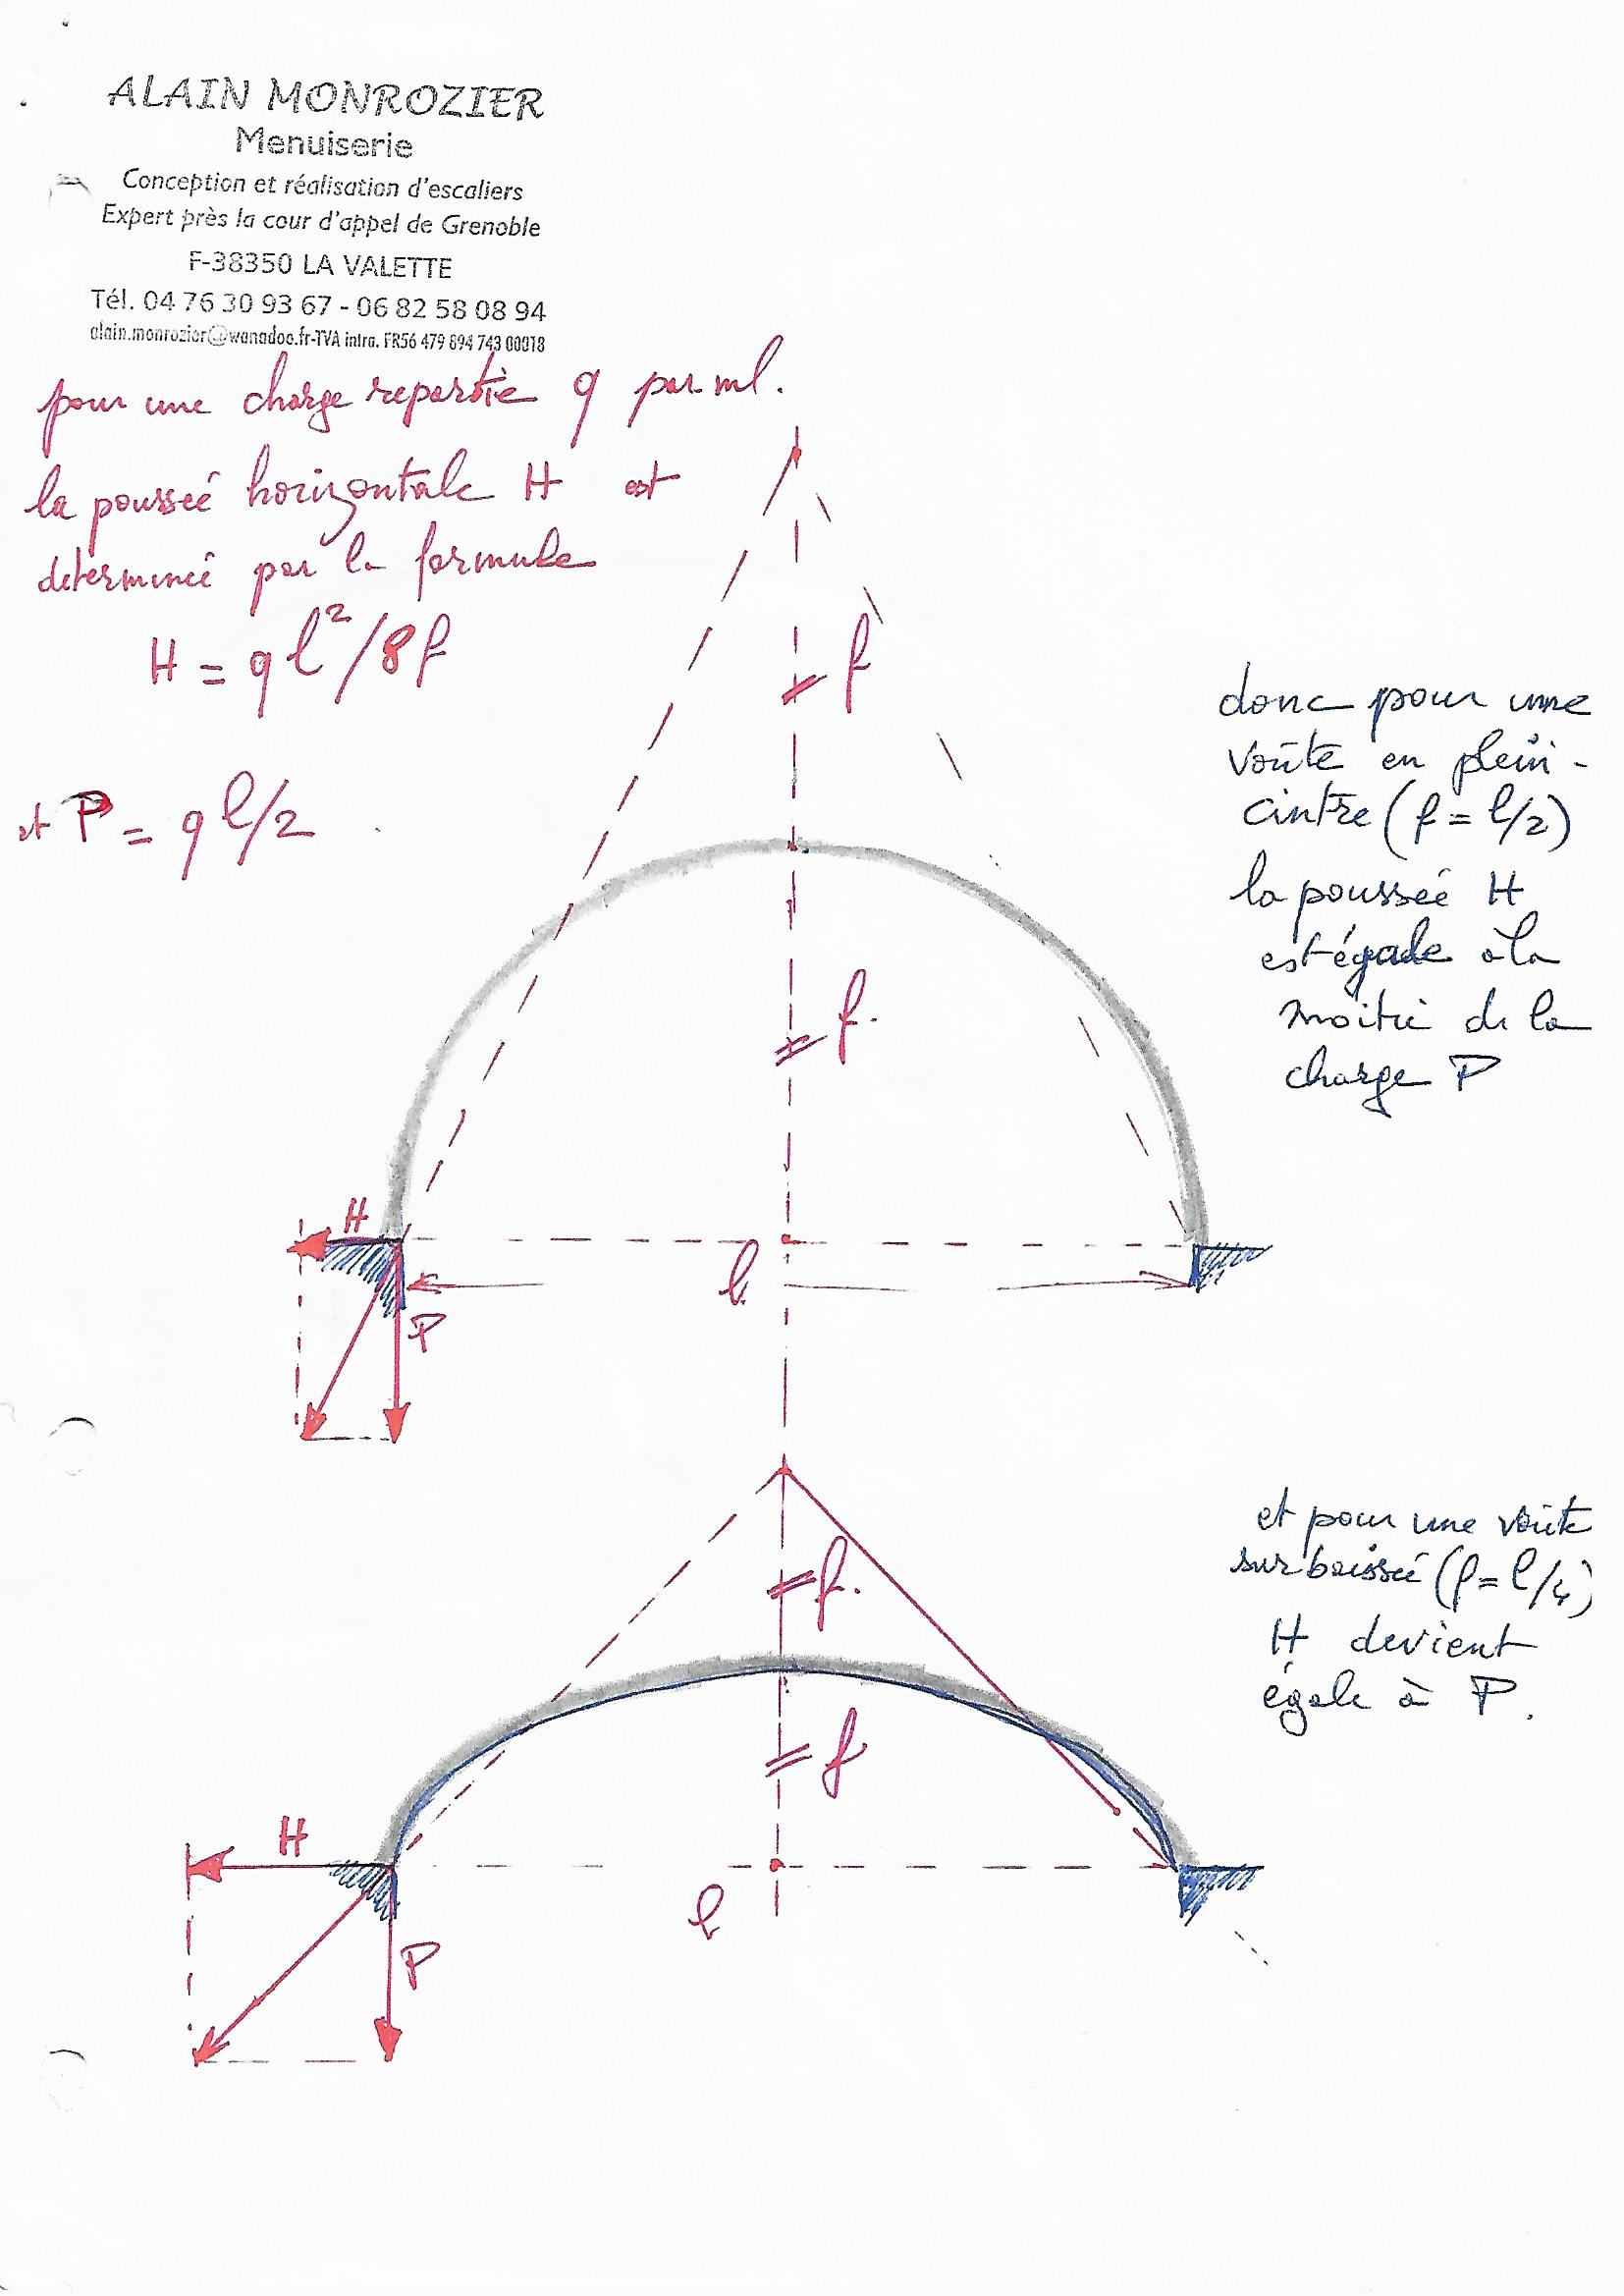 ALAIN MONROZIER
Menuiserie
Conception et réalisation d'escaliers
Expert près la cour d'appel de Grenoble
F-38350 LA VALETTE
Tél. 04 76 30 93 67 - 06 82 58 08 94
alain.monrozier@wanadoo.fr-TVA intra. FR56 479 894 743 00018
pour une charge repartie q par ml.
la pousseé horizontale H est
determineé par la formule
H = q l²/8f
et P = q l/2
f
donc pour une
voûte en plein-
cintre (f = l/2)
la pousseé H
est égale à la
moitié de la
charge P
f.
H
l
P
f.
et pour une voûte
surbaissée (f = l/4)
H devient
égale à P.
f
H
l
P